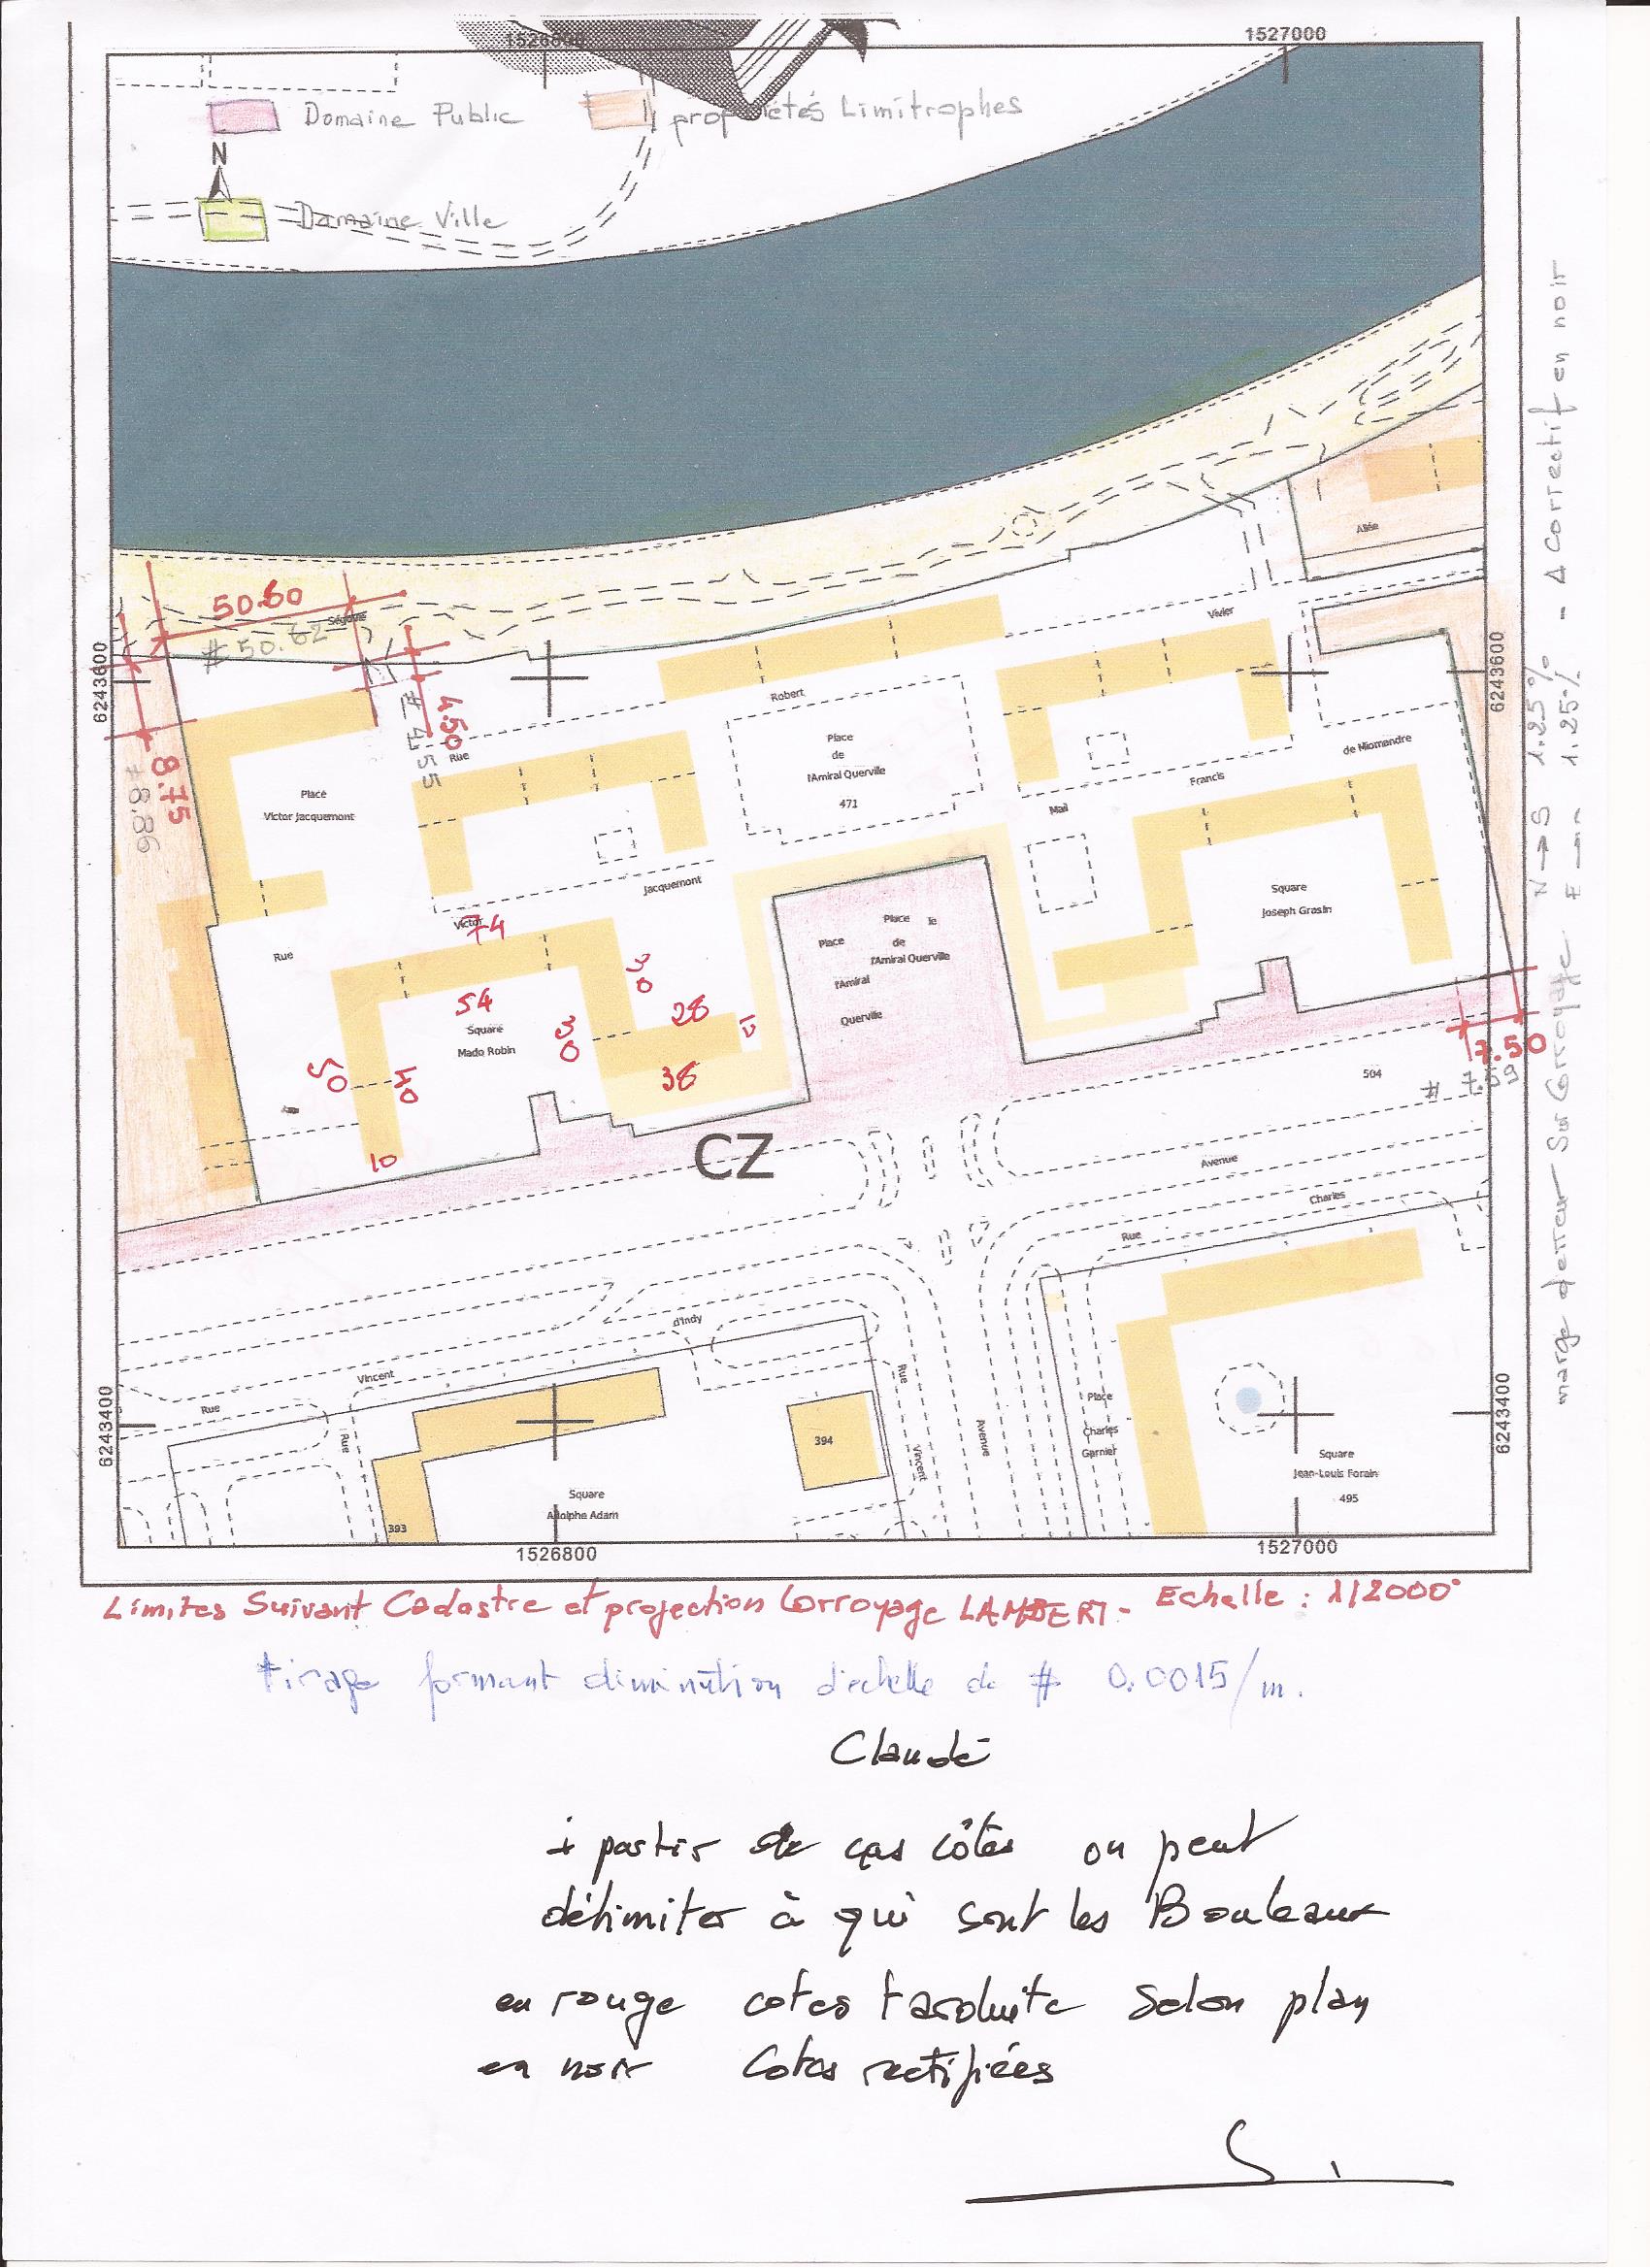 1526800
1527000
Domaine Public
propriétés Limitrophes
N
Domaine Ville
50.60
# 50.62
Ségovie
6243600
6243600
4.50
# 4.55
8.75
# 8.86
Allée
Vivier
Robert
Rue
Place
de
l'Amiral Querville
471
de Miomandre
Francis
Mail
Place
Victor Jacquemont
Jacquemont
Victor
74
Rue
Square
Joseph Grasin
Place
le
Place
de
l'Amiral Querville
l'Amiral
Querville
30
54
28
Square
Mado Robin
30
50
40
38
10
7.50
# 7.59
504
CZ
Avenue
Charles
Rue
d'Indy
Vincent
Rue
Rue
Rue
Vincent
Avenue
Place
Charles
Garnier
6243400
6243400
394
393
Square
Adolphe Adam
Square
Jean-Louis Forain
495
1526800
1527000
marge d'erreur Sur Corroyage N→S 1.25% - Δ Correctif en noir
E 1.25%
Limites Suivant Cadastre et projection Corroyage LAMBERT - Echelle : 1/2000°
tirage formant diminution d'echelle de # 0.0015/m.
Claude
partir de ces côtes on peut
délimiter à qui sont les Bouleaux
en rouge cotes selon plan
en noir Cotes rectifiées